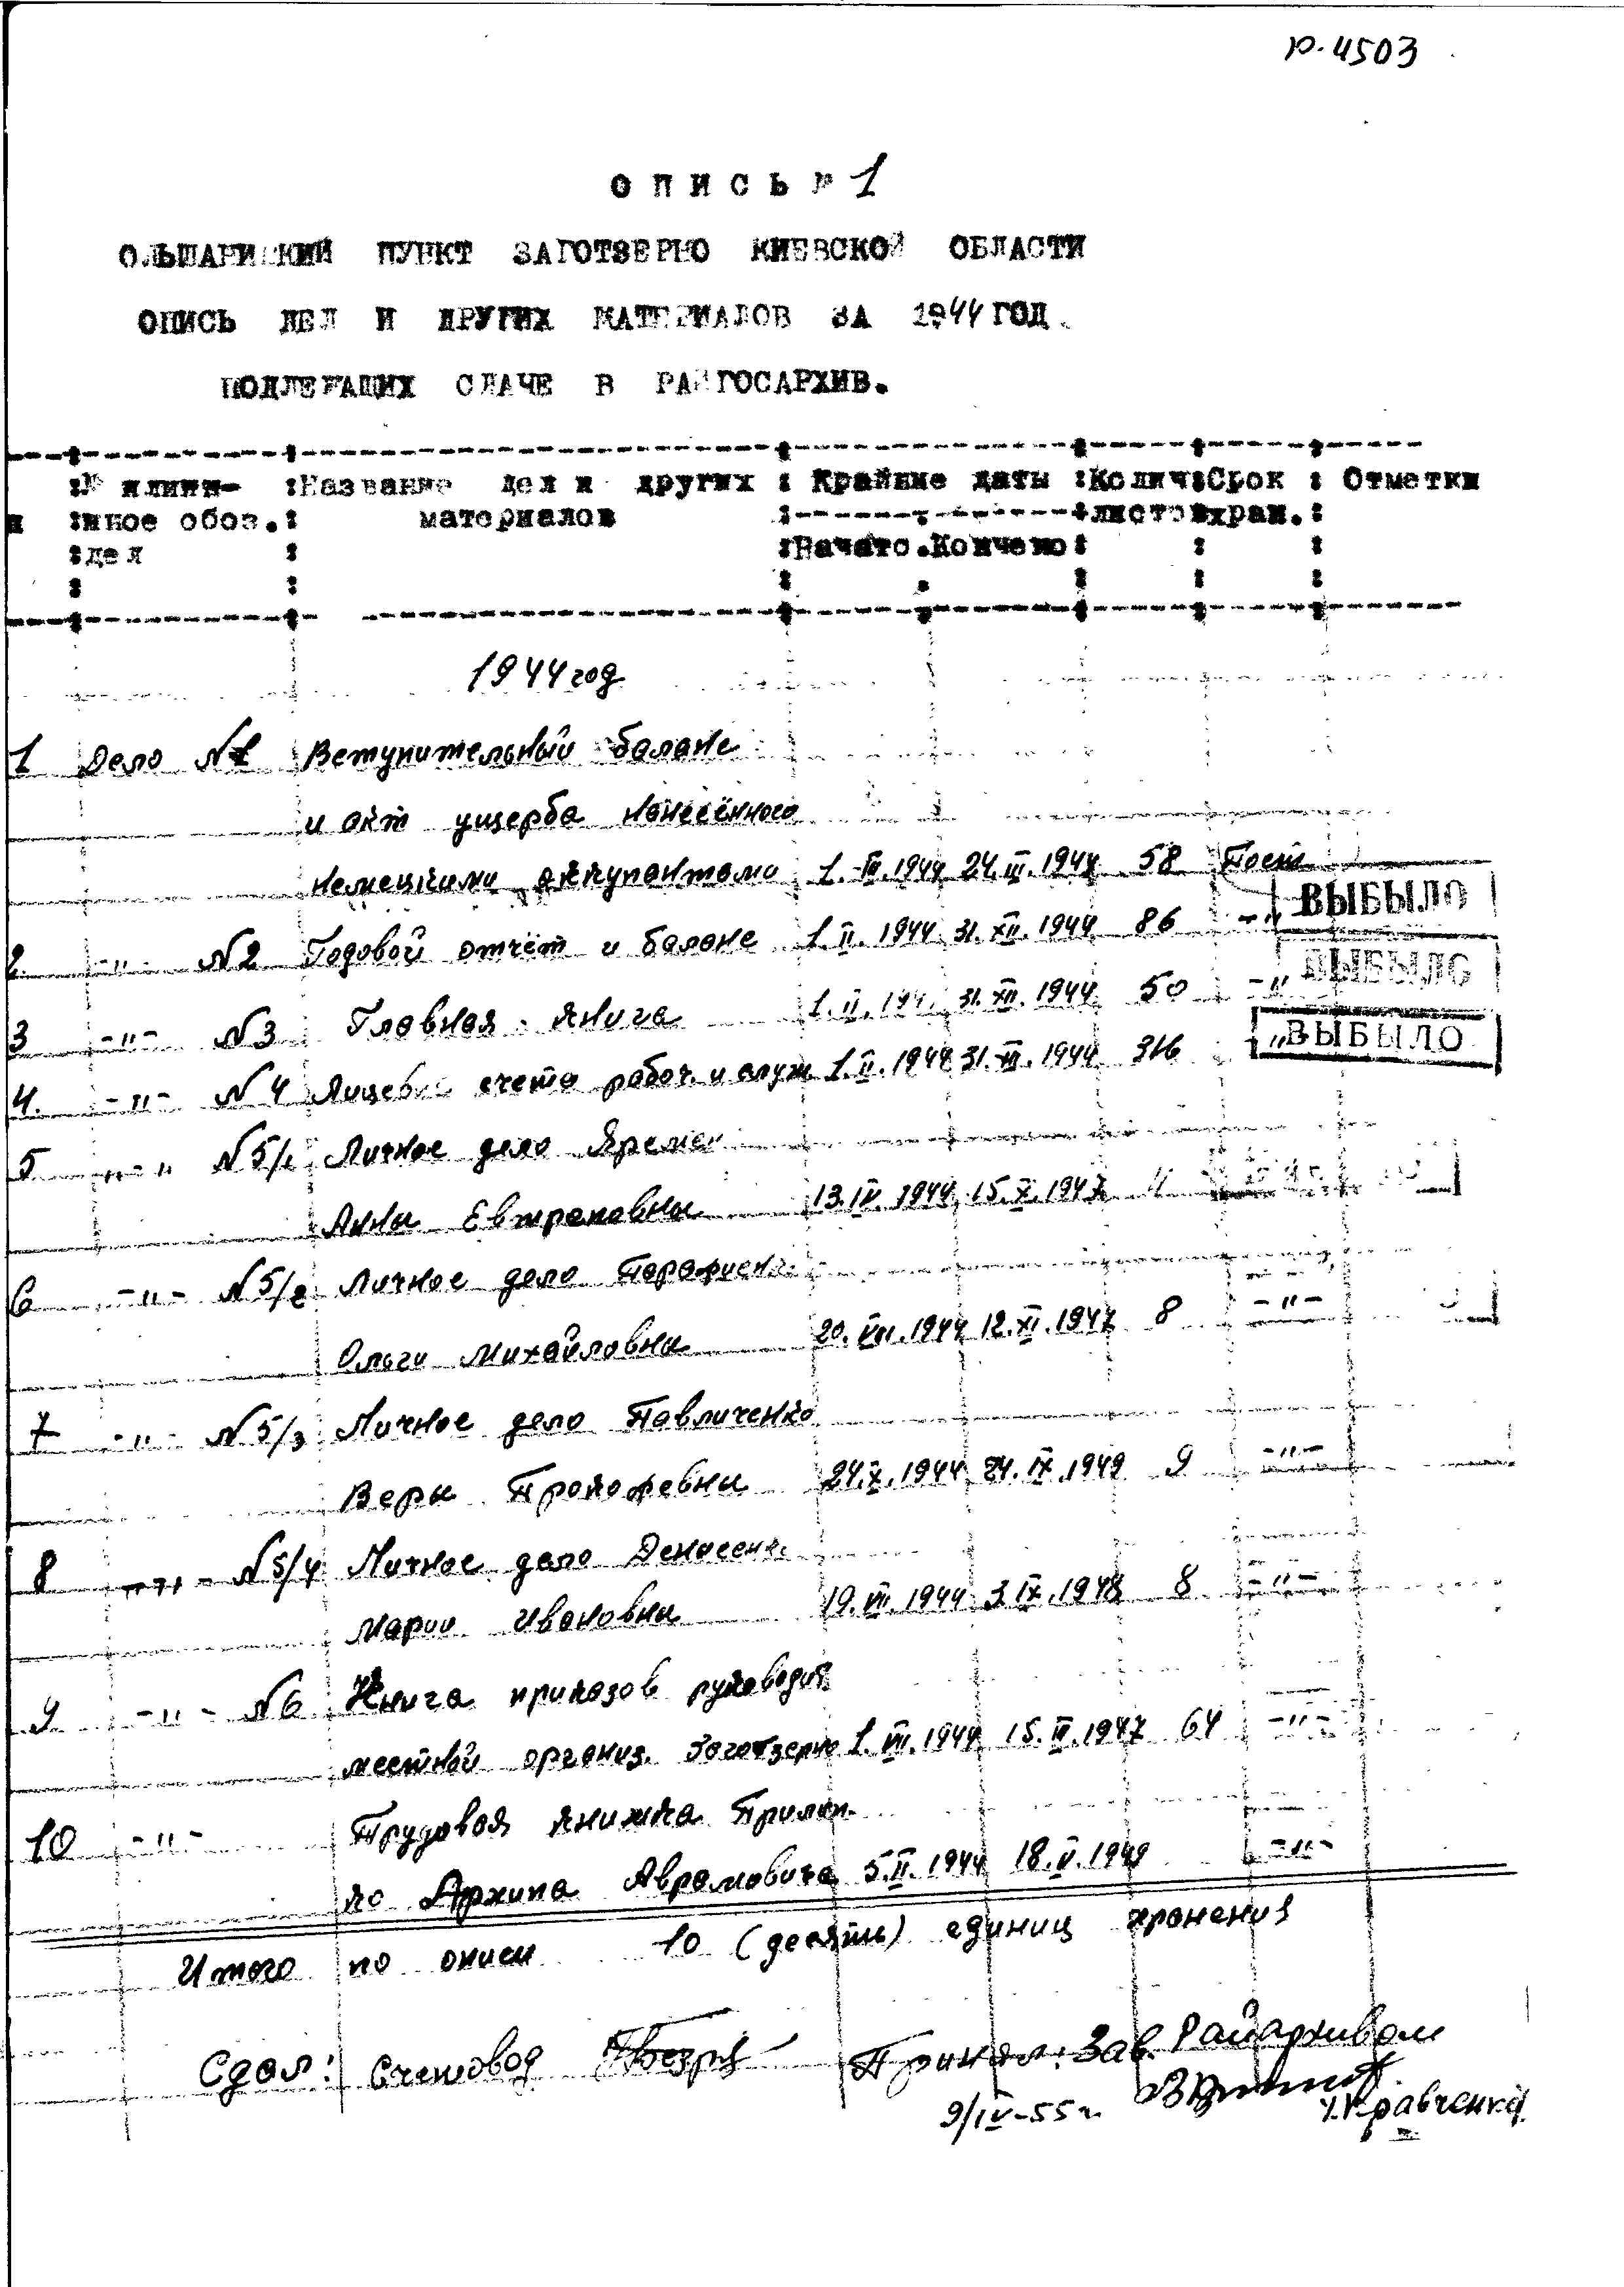 р-4503
О П И С Ь № 1
ОЛЬШАНИСКИЙ ПУНКТ ЗАГОТЗЕРНО КИЕВСКОЙ ОБЛАСТИ
ОПИСЬ ДЕЛ И ДРУГИХ МАТЕРИАЛОВ ЗА 1944 ГОД.
ПОДЛЕЖАЩИХ СДАЧЕ В РАЙГОСАРХИВ.
:№ и :Название дел и других : Крайние даты :Колич:Срок : Отметки
и :нное обоз.: материалов листов хран.:
:дел :Начато.Кончено:
1944 год
1 Дело №1 Вступительный баланс
и акт ущерба нанесённого
немецкими оккупантами 1.III.1944 24.III.1944 58 Пост ВЫБЫЛО
2 -"- №2 Годовой отчёт и баланс 1.II.1944 31.XII.1944 86 -"- ВЫБЫЛО
3 -"- №3 Главная книга 1.II.194 31.XII.1944 50 -"- ВЫБЫЛО
4. -"- №4 Лицевые счета рабоч. и служ. 1.II.1944 31.XII.1944 316
5 -"- №5/1 Личное дело Яремен
Анны Евтраповны 13.IV.1944 15.X.1947
6 -"- №5/2 Личное дело Парафиен
Ольги Михайловны 20.VII.1944 12.XI.1947 8 -"-
7 -"- №5/3 Личное дело Павличенко
Веры Прокофевны 24.X.1944 24.IX.1949 9 -"-
8 -"- №5/4 Личное дело Денисен
Марии Ивановны 19.VII.1944 3.IX.1948 8 -"-
9 -"- №6 Книга приказов руководит.
местной организ. Заготзерно 1.VIII.1944 15.III.1947 64 -"-
10 -"- Трудовая книжка Прилип-
ко Архипа Аврамовича 5.II.1944 18.V.1949 -"-
Итого по описи 10 (десять) единиц хранения
Сдал: Счетовод Принял: Зав. Райархивом
9/IV-55 г. Кравченко